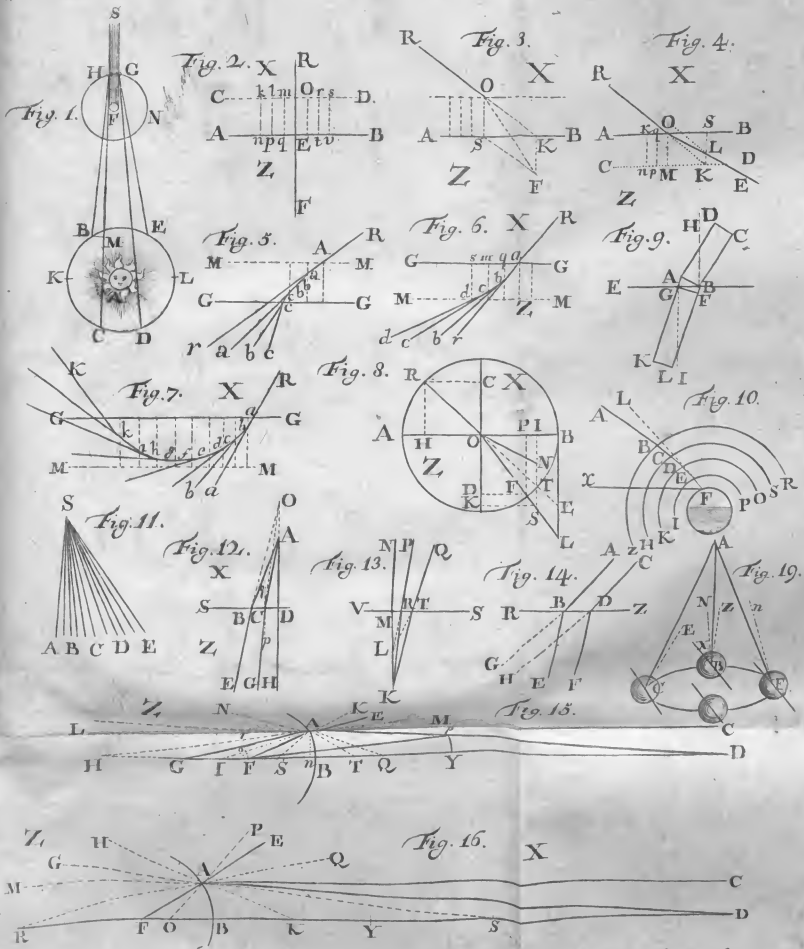 S
H G
Fig. 1.
F
N
B E
M
K L
A
C D
Fig. 2.
X R
C k l m O r s D
A n p q E t v B
Z
F
Fig. 3.
R X
O
A S K B
Z
F
Fig. 4.
R X
A K q O S B
L
C n p M K D
E
Z
Fig. 5.
R
A
M a M
b
b
G c c G
r a b c
Fig. 6.
X R
G s m q a G
b
M d c Z M
d c b r
Fig. 9.
D
H C
E A B
G F
K L I
Fig. 7.
K X R
G a G
k b
i h g f e d c
M M
b a
Fig. 8.
R C X
A H O P I B
Z N
D F T E
K S
L
Fig. 10.
L
A
B C D E
x F
I K H Z
P O S R
Fig. 11.
S
A B C D E
Fig. 12.
O
A
X
S B C D
Z p
E G H
Fig. 13.
N P Q
V M R T S
L
K
Fig. 14.
A C
R B D Z
G H E F
Fig. 19.
A
N Z n
E
B
C E
C
Fig. 15.
Z N K E
L A M
H G I F S n B T Q Y D
Fig. 16.
X
Z H P E
G Q
M A C
R F O B K Y S D